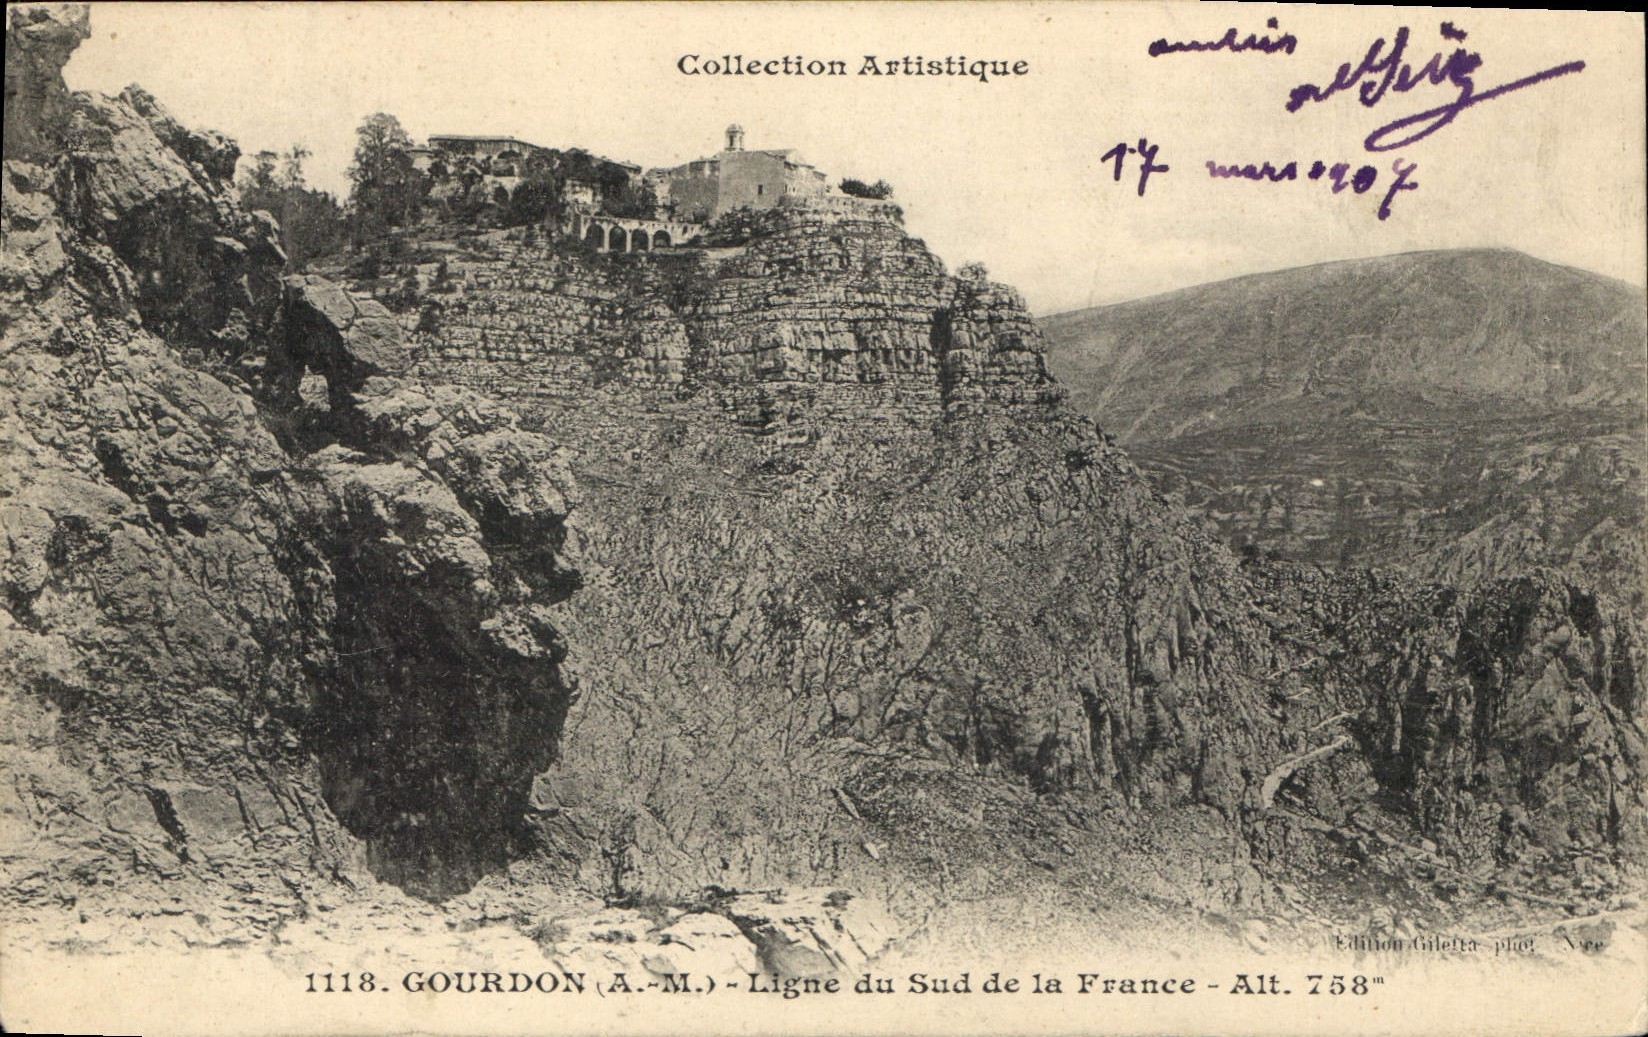 Collection Artistique
17 mars 1907
Edition Giletta phot Nice
1118. GOURDON (A.-M.) - Ligne du Sud de la France - Alt. 758m